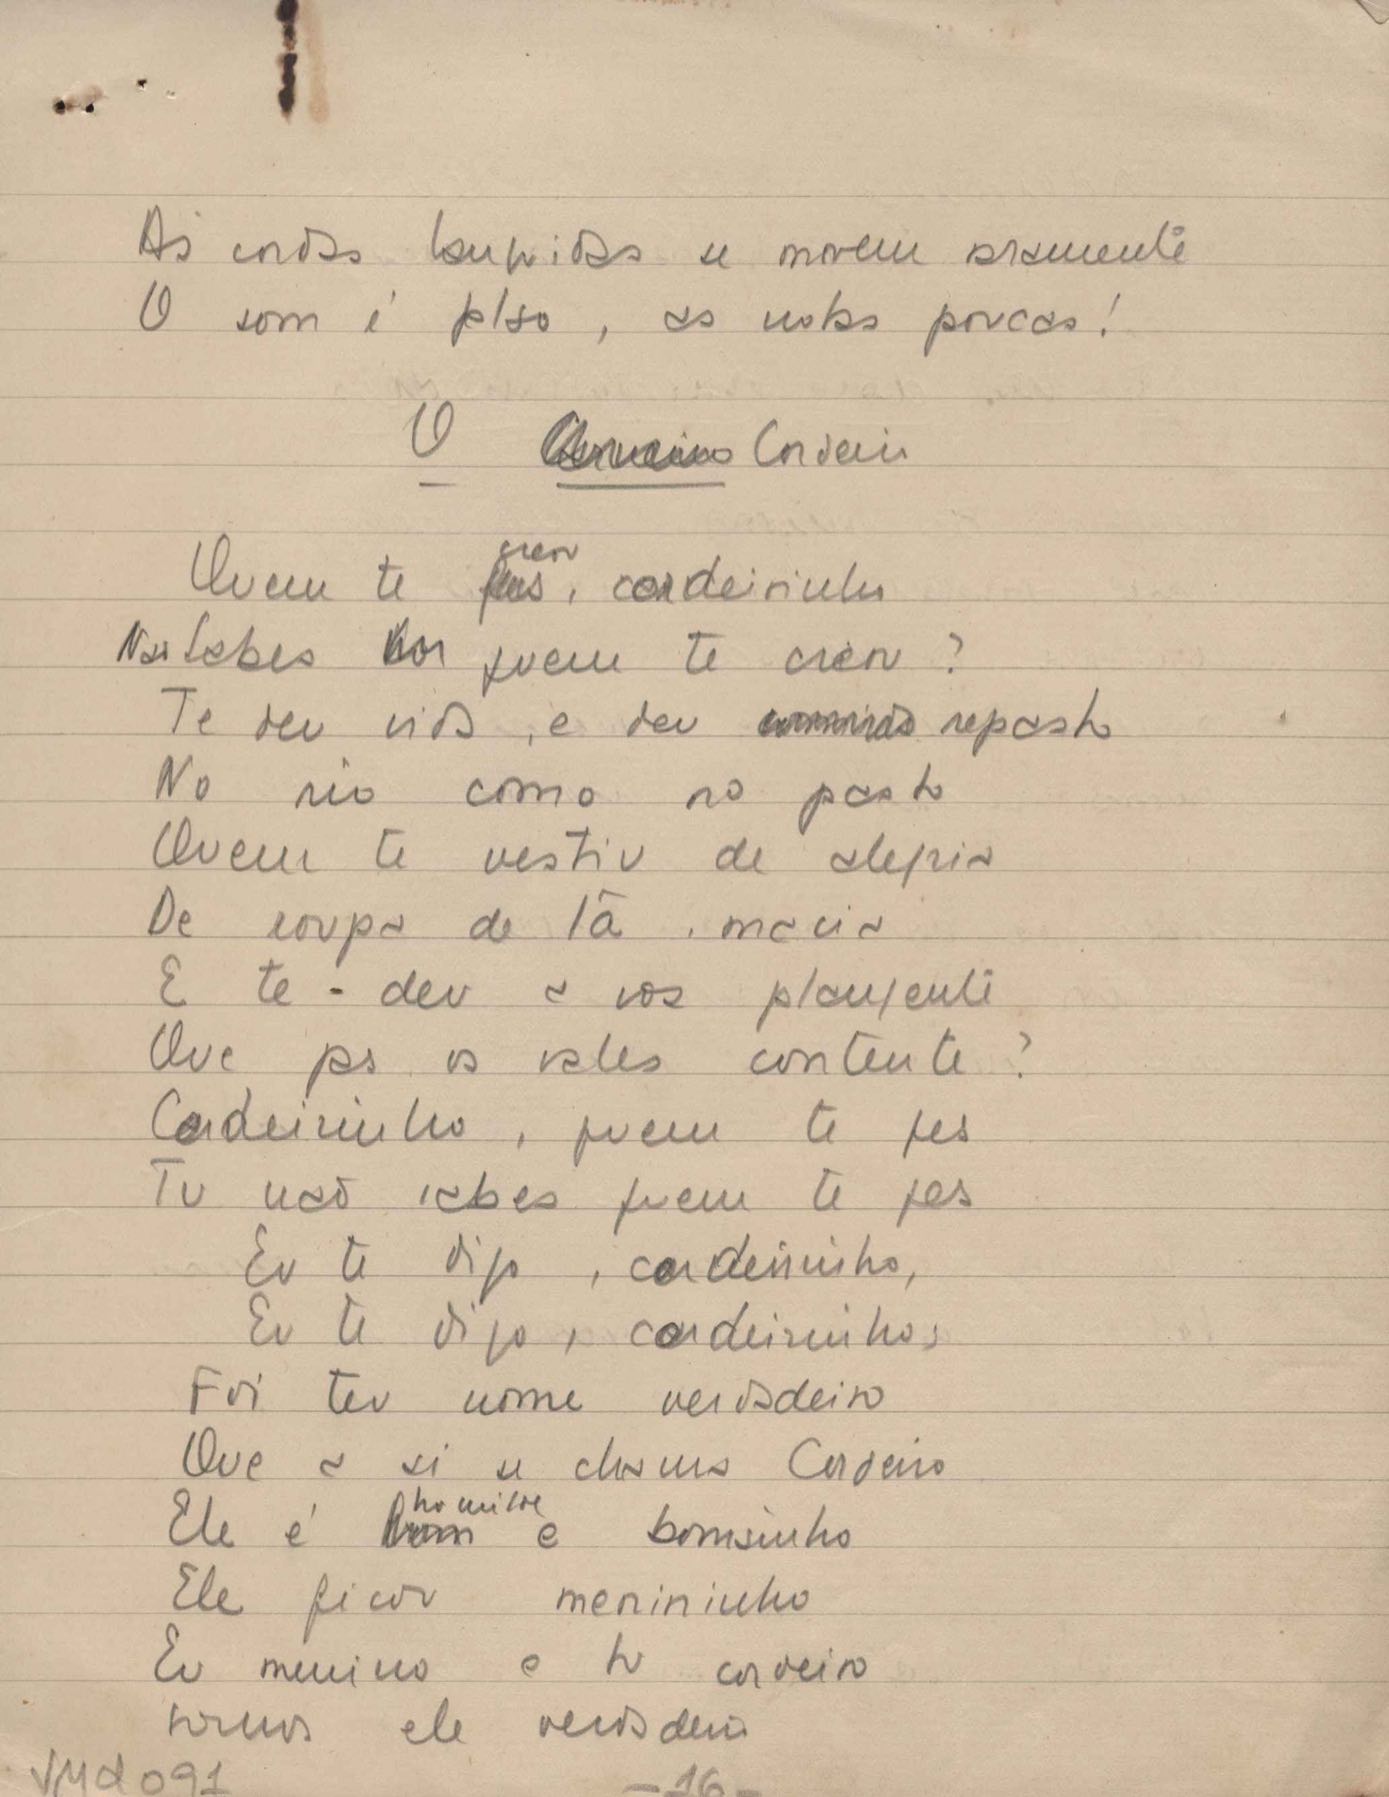 As cordas languidas se movem aramente
O som é falso, as notas poucas!
O Carneiro Cordeiro
Quem te fes, creou cordeirinho
Não Sabes quem te creou?
Te deu vida, e deu comida repasto
No rio como no pasto
Quem te vestiu de alegria
De roupa de lã, macia
E te-deu a vos plangente
Que fas os vales contente?
Cordeirinho, quem te fes
Tu não sabes quem te fes
Eu te digo, cordeirinho,
Eu te digo, cordeirinho;
Foi teu nome verdadeiro
Que a si se chama Cordeiro
Ele é bom humilde e bomsinho
Ele ficou menininho
Eu menino e tu cordeiro
somos ele verdadeiro
VMd091
-16-